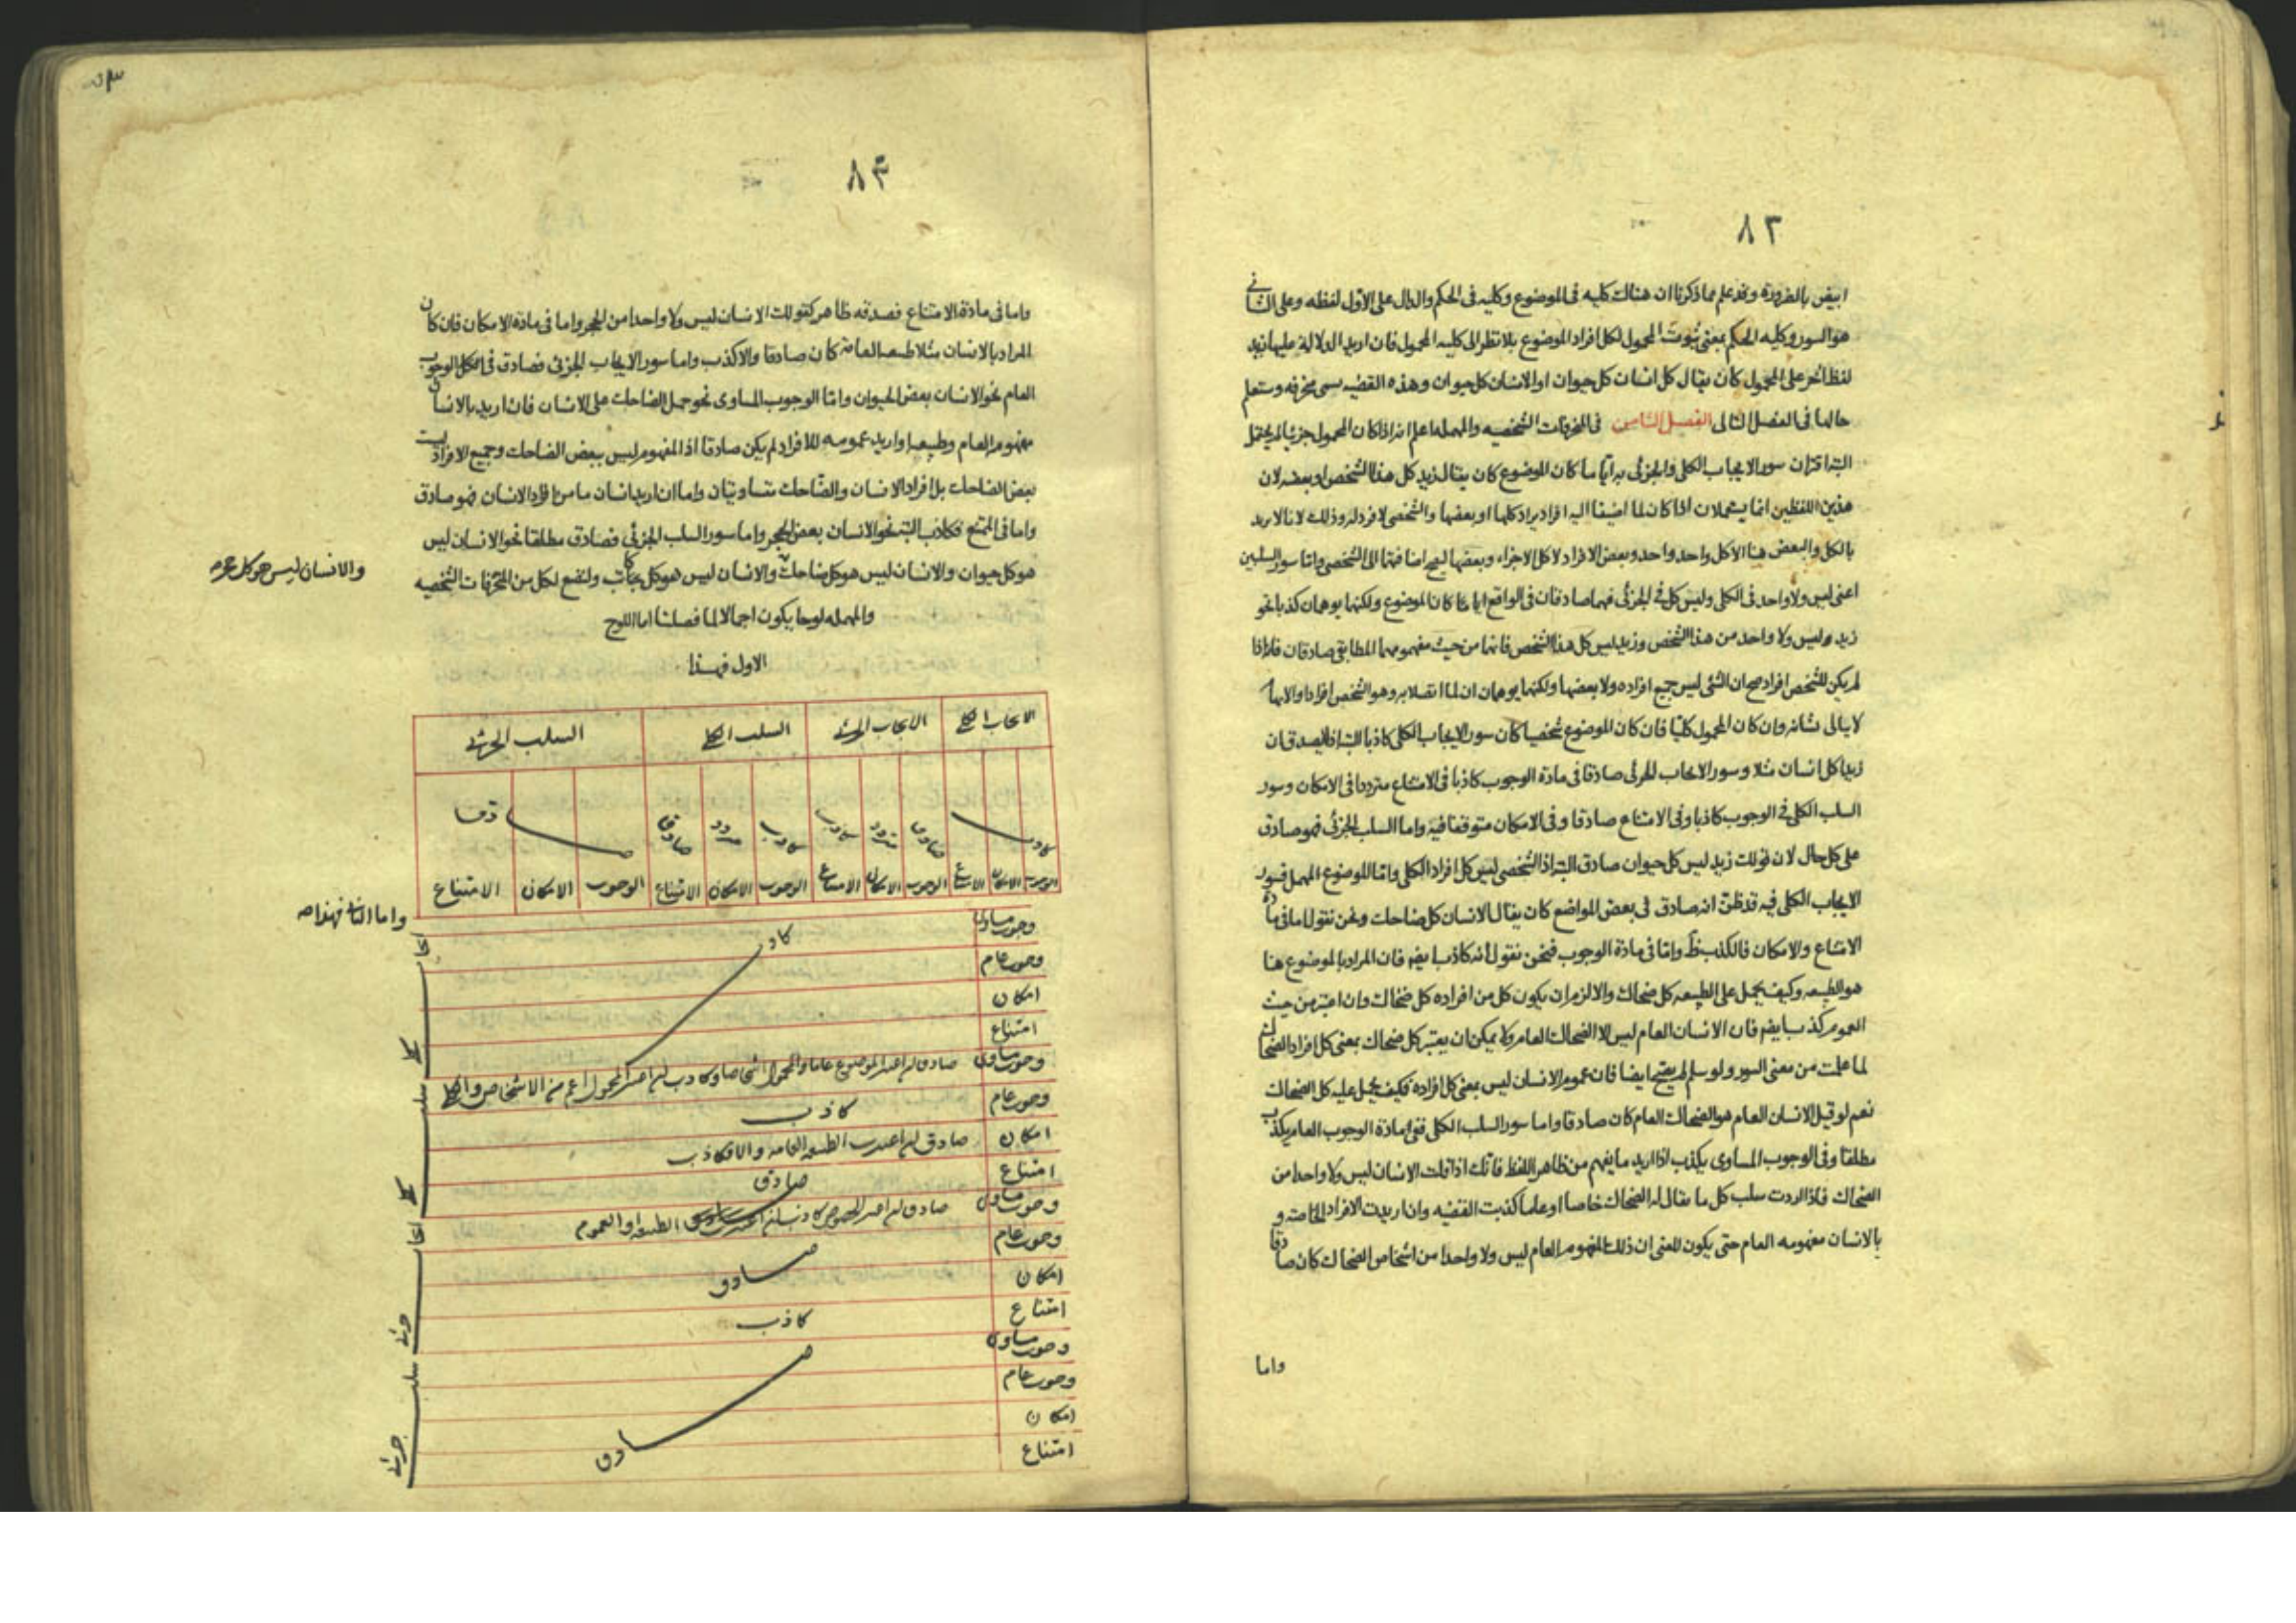 ٨٢
ايض بالضرورة وقد علم مما ذكرنا ان هناك كليه فى الموضوع وكليه فى الحكم والدال على الاول لفظه وعلى الثانى
هو السور وكليه الحكم بمعنى ثبوت المحمول لكل افراد الموضوع بلا نظر الى كليه المحمول فان اريد الدلالة عليها زيد
لفظ اخر على المحمول كان يقال كل انسان كل حيوان او الانسان كل حيوان وهذه القضيه تسمى منحرفه وستعلم
حالها فى الفصل التالى الفصل الثامن فى المنحرفات الشخصيه والمهمله اعلم انه اذا كان المحمول جزئيا لم يحتمل
البته اقتران سور الايجاب الكلى والجزئى به ايا ما كان الموضوع كان يقال زيد كل هذا الشخص او بعضه لان
هذين اللفظين انما يستعملان اذا كان لما اضيفا اليه افراد يراد كلها او بعضها والشخصى لا فرد له وذلك لانا لا نريد
بالكل والبعض هنا الا كل واحد واحد وبعض الافراد لا كل الاجزاء وبعضها ليصح اضافتهما الى الشخصى واما سور السلبين
اعنى ليس ولا واحد فى الكلى وليس كل فى الجزئى فهما صادقان فى الواقع ايا ما كان الموضوع ولكنهما يوهمان كذبا نحو
زيد ليس ولا واحد من هذا الشخص وزيد ليس كل هذا الشخص فانهما من حيث مفهومهما المطابقى صادقان فانه اذا
لم يكن للشخص افراد صح ان الشئ ليس جميع افراده ولا بعضها ولكنهما يوهمان ان لما اتصلا به وهو الشخص افرادا والايهام
لا يبالى بشانه وان كان المحمول كليا فان كان الموضوع شخصيا كان سور الايجاب الكلى كاذبا البته اذ لا يصدق ان
زيدا كل انسان مثلا وسور الايجاب الجزئى صادقا فى مادة الوجوب كاذبا فى الامتناع مترددا فى الامكان وسور
السلب الكلى فى الوجوب كاذبا وفى الامتناع صادقا وفى الامكان متوقفا فيه واما السلب الجزئى فهو صادق
على كل حال لان قولك زيد ليس كل حيوان صادق البته اذ الشخصى ليس كل افراد الكلى واما الموضوع المهمل فسور
الايجاب الكلى فيه قد ظن انه صادق فى بعض المواضع كان يقال الانسان كل ضاحك ونحن نقول اما فى مادة
الامتناع والامكان فالكذب ظ واما فى مادة الوجوب فنحن نقول انه كاذب ايض فان المراد بالموضوع هنا
هو الطبيعه وكيف يحمل على الطبيعه كل ضحاك والا لزم ان يكون كل من افراده كل ضحاك وان اعتبر من حيث
العموم كذب ايض فان الانسان العام ليس الا الضحاك العام ولا يمكن ان يعتبر كل ضحاك بمعنى كل افراد الضحاك
لما علمت من معنى السور ولو سلم لم يصح ايضا فان عموم الانسان ليس بمعنى كل افراده فكيف يحمل عليه كل الضحاك
نعم لو قيل الانسان العام هو الضحاك العام كان صادقا واما سور السلب الكلى ففى مادة الوجوب العام يكذب
مطلقا وفى الوجوب المساوى يكذب اذا اريد ما يفهم من ظاهر اللفظ فانك اذا قلت الانسان ليس ولا واحدا من
الضحاك فاذا اردت سلب كل ما يقال له الضحاك خاصا او عاما كذبت القضيه وان اريدت الافراد الخاصة و
بالانسان مفهومه العام حتى يكون المعنى ان ذلك المفهوم العام ليس ولا واحدا من اشخاص الضحاك كان صادقا
واما
٨٣
واما فى مادة الامتناع فصدقه ظاهر كقولك الانسان ليس ولا واحدا من الحجر واما فى مادة الامكان فان كان
المراد بالانسان مثلا طبيعه العامه كان صادقا والا كذب واما سور الايجاب الجزئى فصادق فى كل الوجوب
العام نحو الانسان بعض الحيوان واما الوجوب المساوى نحو حمل الضاحك على الانسان فان اريد بالانسان
مفهومه العام وطبيعه واريد عمومه للافراد لم يكن صادقا اذ المفهوم ليس ببعض الضاحك وجميع الافراد ليست
بعض الضاحك بل افراد الانسان والضاحك متساويتان واما ان اريد انسان ما من افراد الانسان فهو صادق
واما فى الممتنع فكاذب البته نحو الانسان بعض الحجر واما سور السلب الجزئى فصادق مطلقا نحو الانسان ليس
هو كل حيوان والانسان ليس هو كل ضاحك والانسان ليس هو كل كاتب ولنضع لكل من المنحرفات الشخصيه
والانسان ليس هو كل حجر صح
والمهمله لوحا يكون اجمالا لما فصلنا اما اللوح
الاول فهذا
الايجاب الكلى الايجاب الجزئى السلب الكلى السلب الجزئى
كاذب صادق متردد كاذب كاذب متردد صادق صادق
الوجوب الامكان الامتناع الوجوب الامكان الامتناع الوجوب الامكان الامتناع الوجوب الامكان الامتناع
واما الثانى فهذا صه
ايجاب كلى
وجوب مساوى كاذب
وجوب عام
امكان
امتناع
سلب كلى
وجوب مساوى صادق ان اعتبر الموضوع عاما والمحمول اشخاصا وكاذب ان اعتبر المحمول اعم من الاشخاص والكلى
وجوب عام كاذب
امكان صادق ان اعتبرت الطبيعه العامه والا فكاذب
امتناع صادق
ايجاب جزئى
وجوب مساوى صادق ان اعتبر الخصوص كاذب ان اعتبر الطبيعه او العموم
وجوب عام صادق
امكان
امتناع كاذب
سلب جزئى
وجوب مساوى صادق
وجوب عام
امكان
امتناع